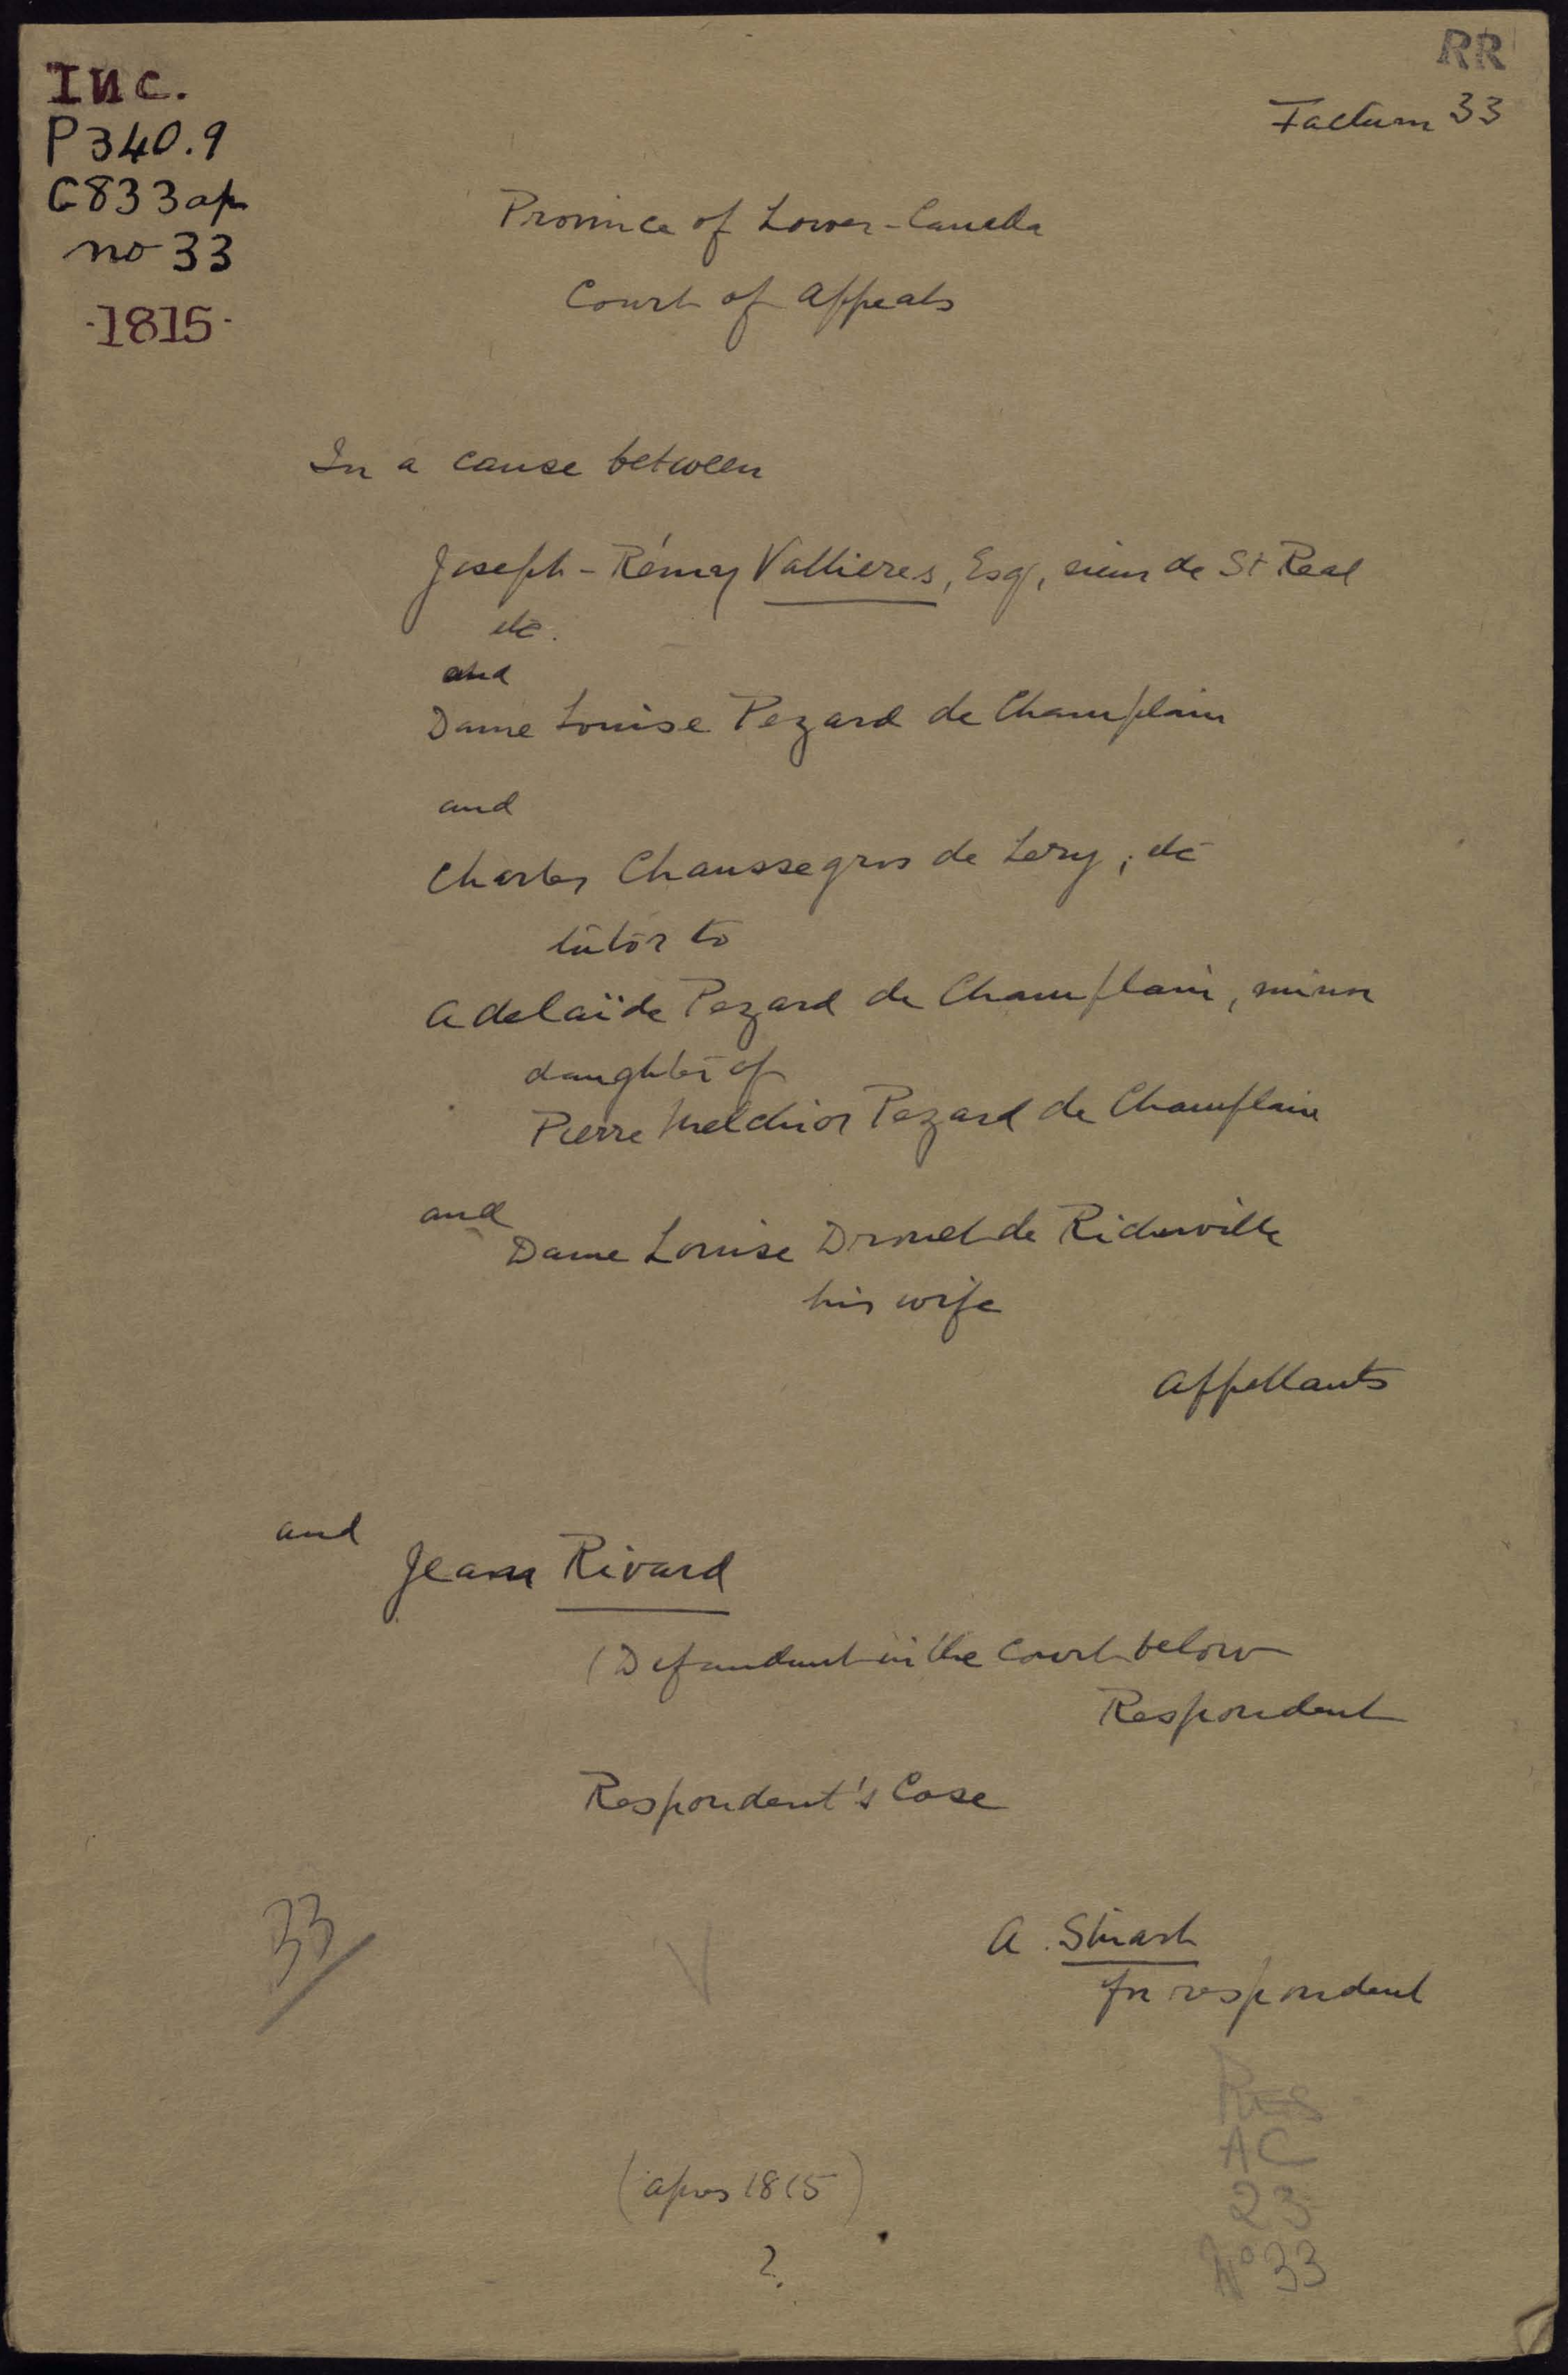 INC.
P340.9
C833ap
no 33
-1815-
RR
Factum 33
Province of Lower-Canada
Court of Appeals
In a cause between
Joseph-Rémy Vallieres, Esq, sieur de St Real
etc.
and
Dame Louise Pezard de Champlain
and
Charles Chaussegros de Lery, etc
tutor to
Adelaïde Pezard de Champlain, minor
daughter of
Pierre Melchior Pezard de Champlain
and
Dame Louise Drouet de Richerville
his wife
Appellants
and
Jean Rivard
(Defendant in the Court below
Respondent
Respondent's Case
33
V
A. Stuart
for respondent
RES
AC
23
No 33
(apres 1815)
?